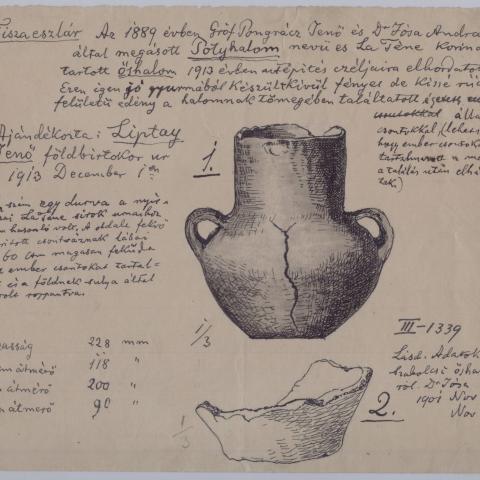 Tiszaeszlár Az 1889 évben Gróf Pongrácz Jenő és Dr Jósa Andra
által megásott Potyhalom nevű és La Tène korina
tartott őshalom 1913 évben utépités czéljaira elhordato
Ezen igen jó gyurmából készült kívül fényes de kissé
felületű edény a halomnak tömegében találtatott
csontokkal (lehets
hogy ember csontoka
tartalmazott
a találás után
tek.)
Ajándékozta: Liptay
Jenő földbirtokos ur
1913 December 1 én
egy durva a nyir
La Tène sirok urnaihoz
hasonló volt. A oldalt fekvő
csontváznak lábai
60 cm magasan feküdt
ember csontokat tartal=
és a földnek sulya által
roppantva.
1.
1/3
asság 228 mm
átmérő 118 "
átmérő 200 "
átmérő 90 "
III-1339
Lásd. Adatok
Szabolcsi ősha
ról Dr Jósa
1901 Nov
Nov
1/3
2.